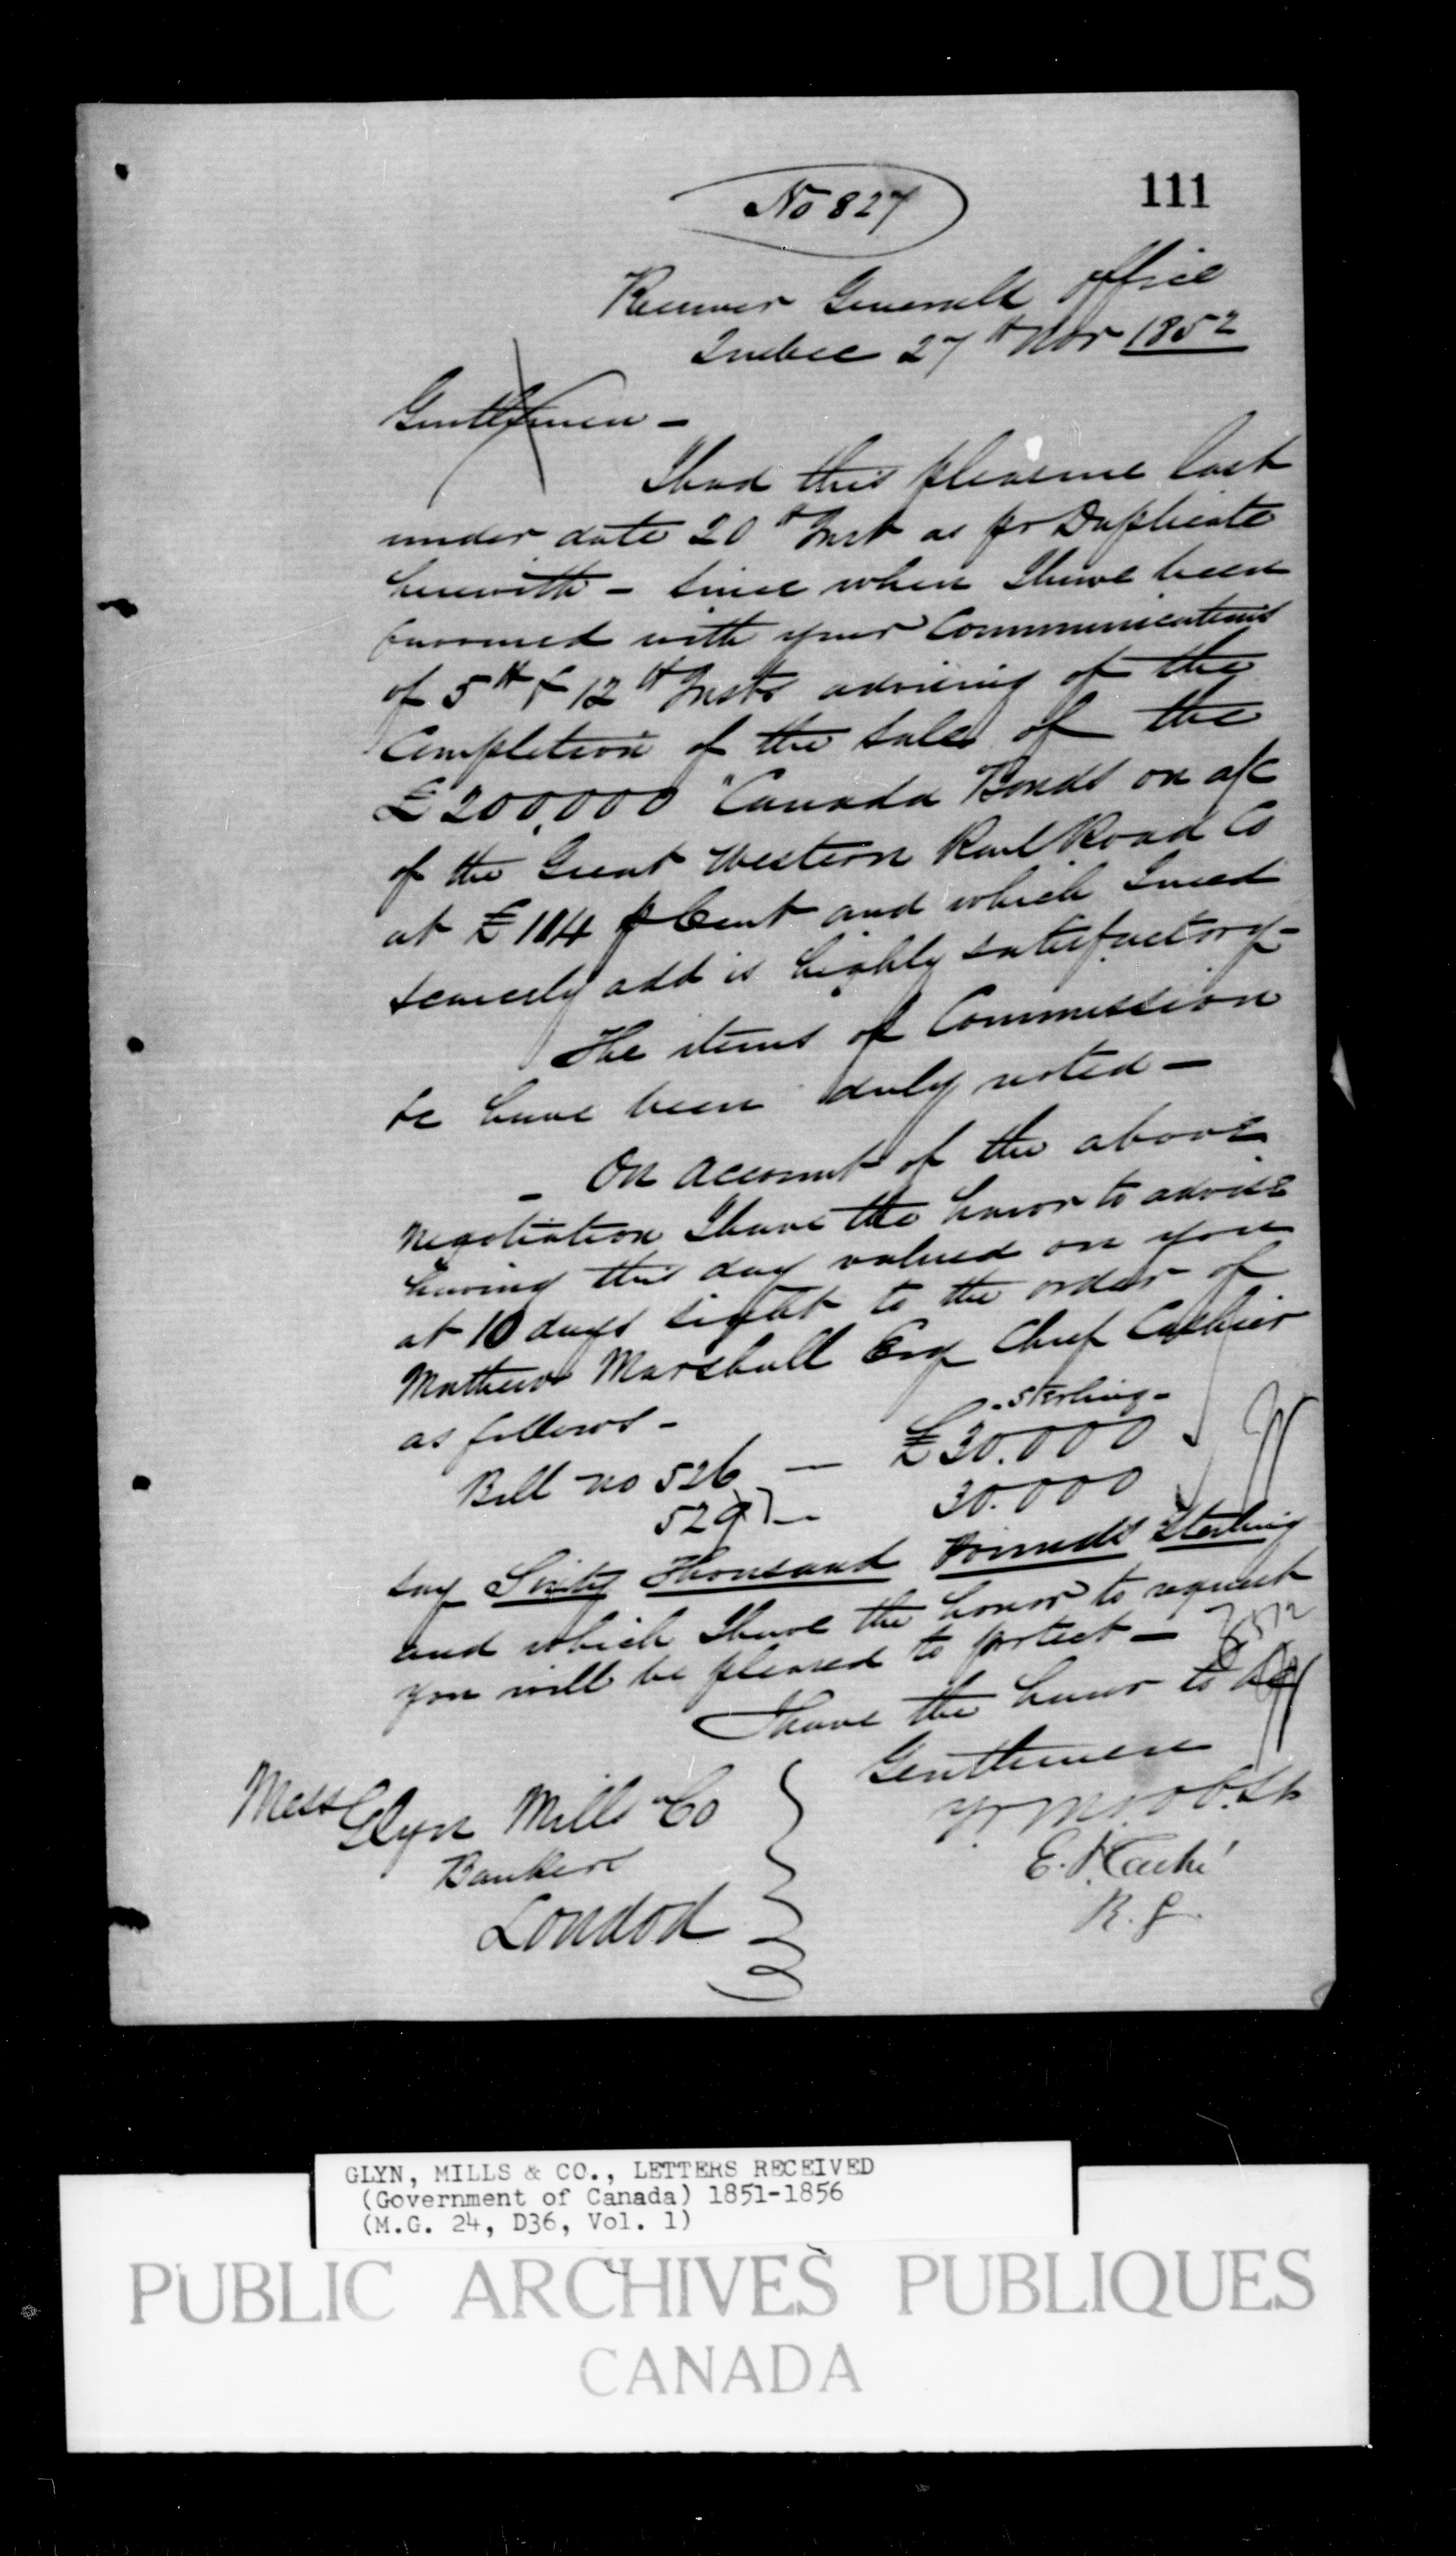 111
No 827
Receiver Generals Office
Quebec 27th Nov 1852
Gentlemen -
I had this pleasure last
under date 20th Inst as pr Duplicate
herewith - since when I have been
favoured with your Communications
of 5th & 12th Insts advising of the
Completion of the sale of the
£200,000 Canada Bonds on a/c
of the Great Western Rail Road Co
at £114 p Cent and which I need
scarcely add is highly satisfactory -
The items of Commission
&c have been duly noted -
- On account of the above
negotiation I have the honor to advise
having this day valued on you
at 10 days sight to the order of
Matthew Marshall Esq Chief Cashier
as follows -
- Sterling -
Bill no 526 — £30.000
527 — 30.000
say Sixty Thousand Pounds Sterling
and which I have the honor to request
you will be pleased to protect —
I have the honor to be
Gentlemen
Yr Mo Ob. St
E. P. Taché
R. G.
Mess Glyn Mills & Co
Bankers
London
GLYN, MILLS & CO., LETTERS RECEIVED
(Government of Canada) 1851-1856
(M.G. 24, D36, Vol. 1)
PUBLIC ARCHIVES PUBLIQUES
CANADA